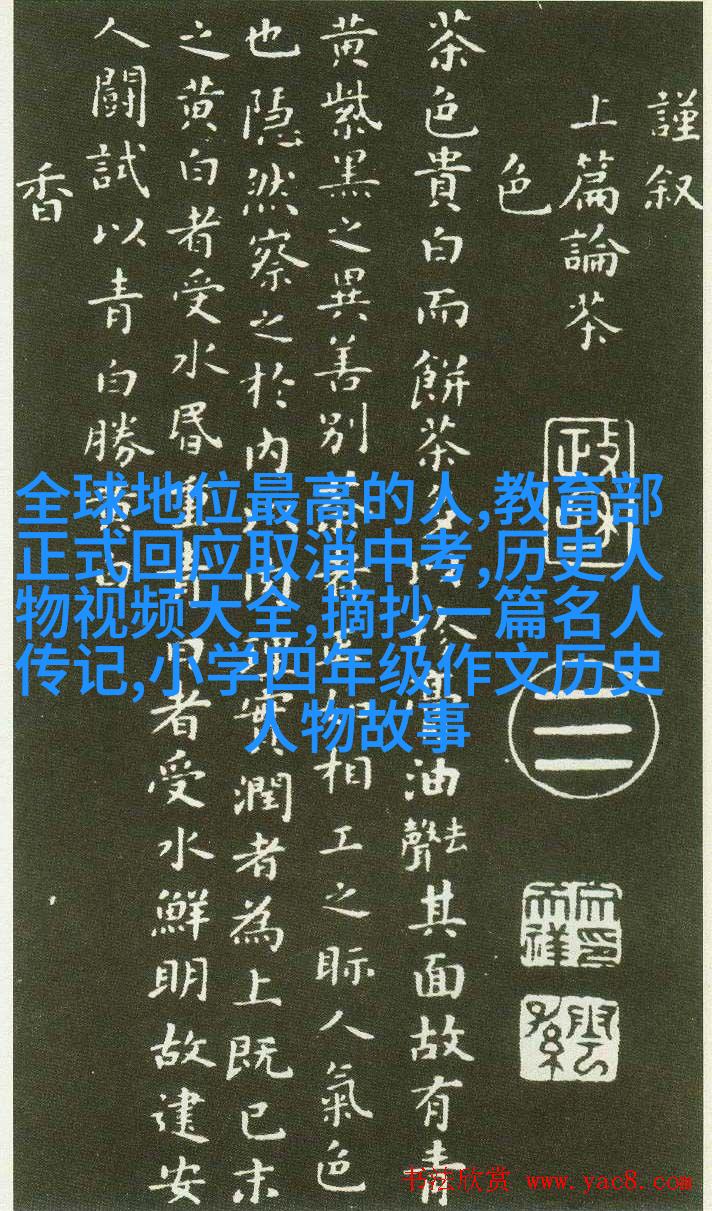 謹叙
上篇論茶
色
茶色貴白而餅茶多珍膏油去聲其面故有青
黃紫黑之異善別茶相工之眎人氣色
也隱然察之於內以肉理實潤者為上既已末
之黃白者受水昏重青白者受水鮮明故建安
人鬪試以青白勝黃白
香
政和
全球地位最高的人,教育部
正式回应取消中考,历史人
物视频大全,摘抄一篇名人
传记,小学四年级作文历史
人物故事
书法欣赏 www.yac8.com